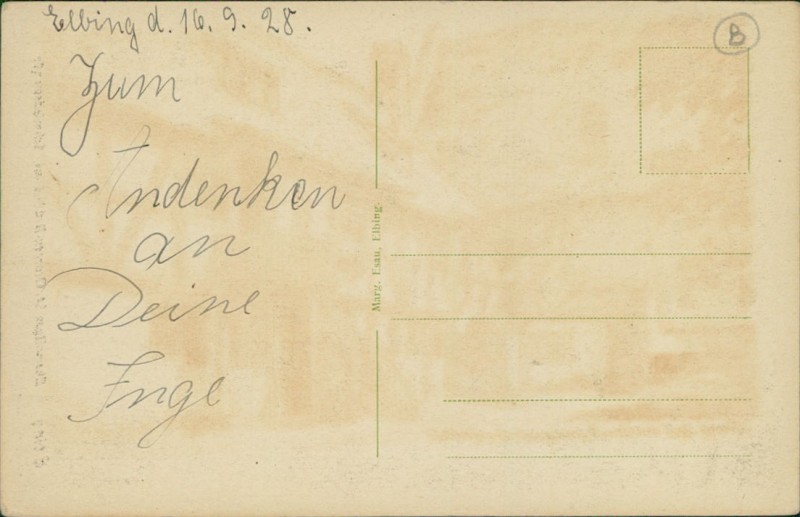 Elbing d. 16. 9. 28.
B
Zum
Andenken
an
Deine
Inge
Marg. Esau, Elbing.